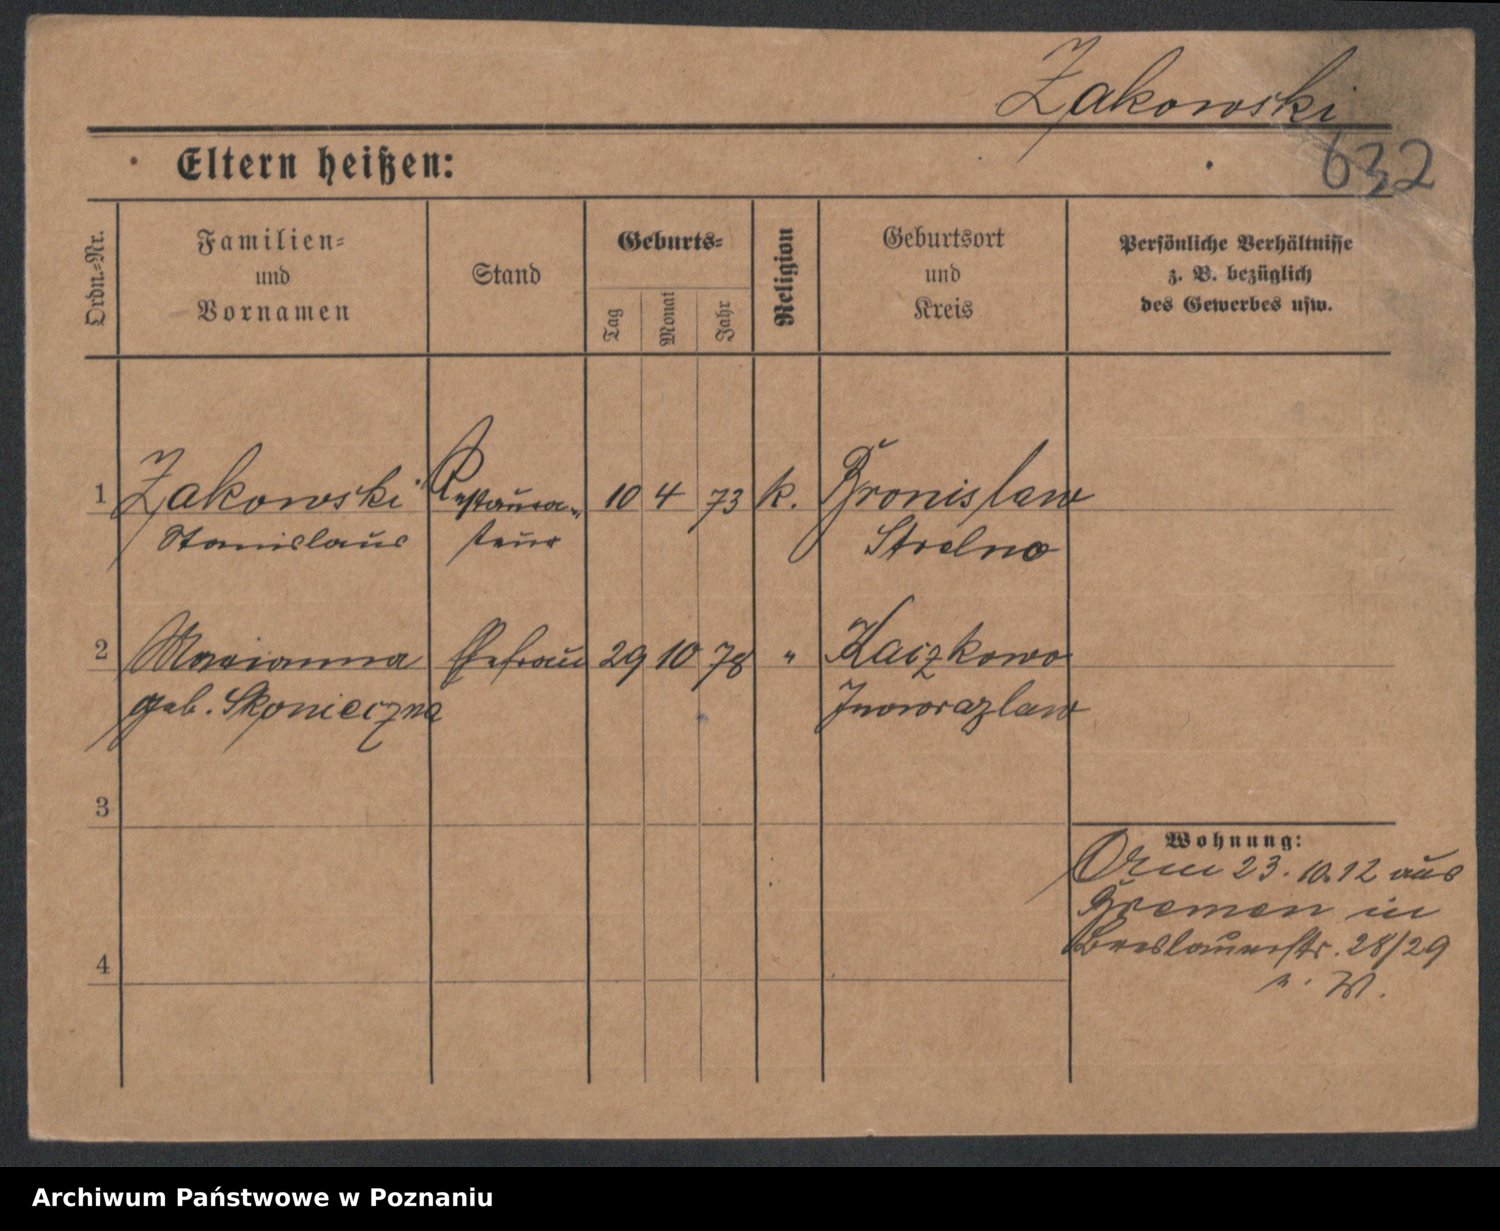 Zakowski
632
Eltern heißen:
Ordn.-Nr.
Familien-
und
Vornamen
Stand
Geburts-
Tag
Monat
Jahr
Religion
Geburtsort
und
Kreis
Persönliche Verhältnisse
z. B. bezüglich
des Gewerbes usw.
1 Zakowski Restaura- 10 4 73 k. Bronislaw
Stanislaus teur Strelno
2 Marianna Ehefrau 29 10 78 " Kaczkowo
geb. Skonieczna Inowrazlaw
3
Wohnung:
Am 23. 10. 12 aus
Bremen in
Breslauerstr. 28/29
4